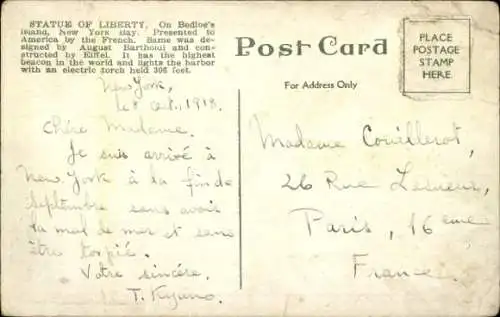 STATUE OF LIBERTY. On Bedloe's
Island, New York Bay. Presented to
America by the French. Same was de-
signed by August Bartholdi and con-
structed by Eiffel. It has the highest
beacon in the world and lights the harbor
with an electric torch held 306 feet.
Post Card
For Address Only
PLACE
POSTAGE
STAMP
HERE
New York,
le 8 oct., 1918.
Chère Madame.
Je suis arrivé à
New York à la fin de
Septembre sans avoir
la mal de mer et sans
être torpié.
Votre sincére,
T. Kyuno.
Madame Couillerot,
26 Rue Lesueur,
Paris, 16eme
France.